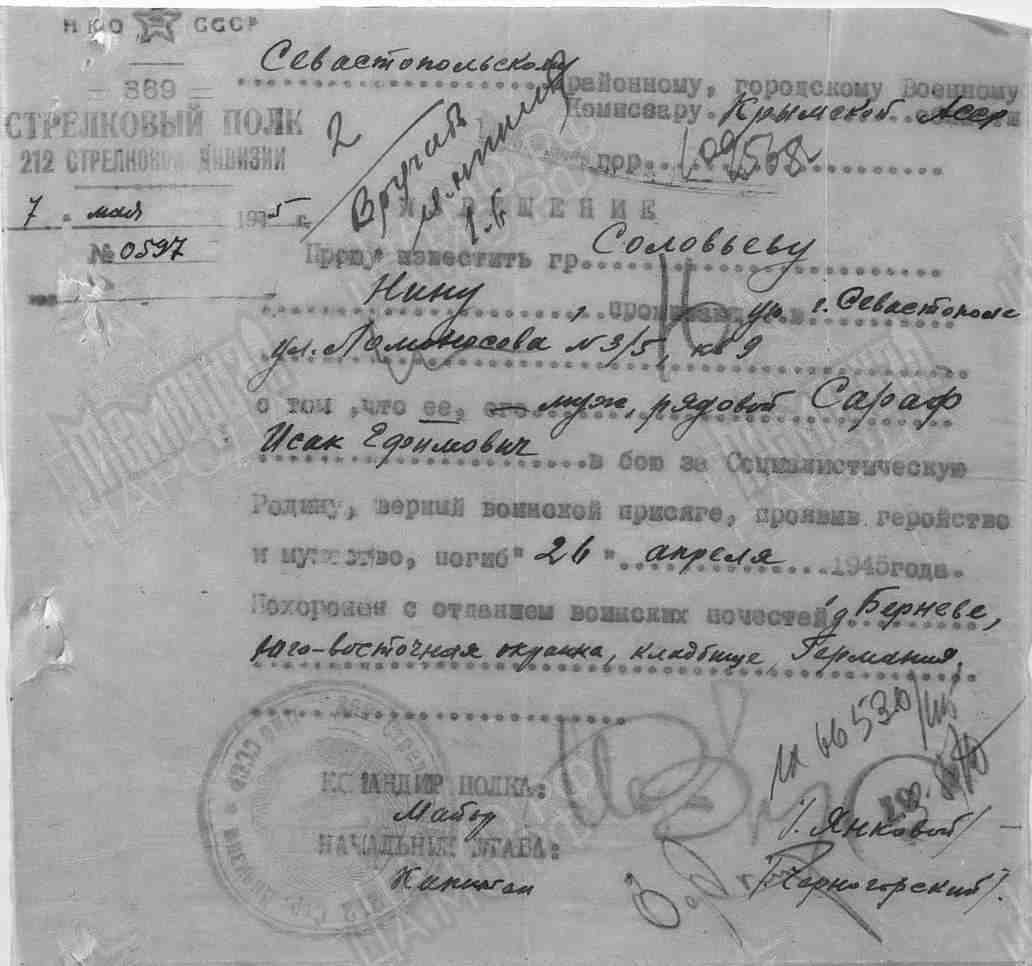 НКО СССР
— 369 —
СТРЕЛКОВЫЙ ПОЛК
212 СТРЕЛКОВОЙ ДИВИЗИИ
7 " мая 1945 г.
№ 0597
Севастопольскому районному, городскому Военному
Комиссару Крымской АССР
гор.
2
Вручать
ИЗВЕЩЕНИЕ
Прошу известить гр. Соловьеву
Нину, г. Севастополе
ул. Ломоносова №3/5, кв 9
о том, что ее, его муж, рядовой Сараф
Исак Ефимович в бою за Социалистическую
Родину, верный воинской присяге, проявив геройство
и мужество, погиб "26" апреля 1945 года.
Похоронен с отданием воинских почестей д Берневе,
юго-восточная окраина, кладбище, Германия.
КОМАНДИР ПОЛКА:
Майор /Янковой/
НАЧАЛЬНИК ШТАБА:
Капитан /Черногорский/.
66530